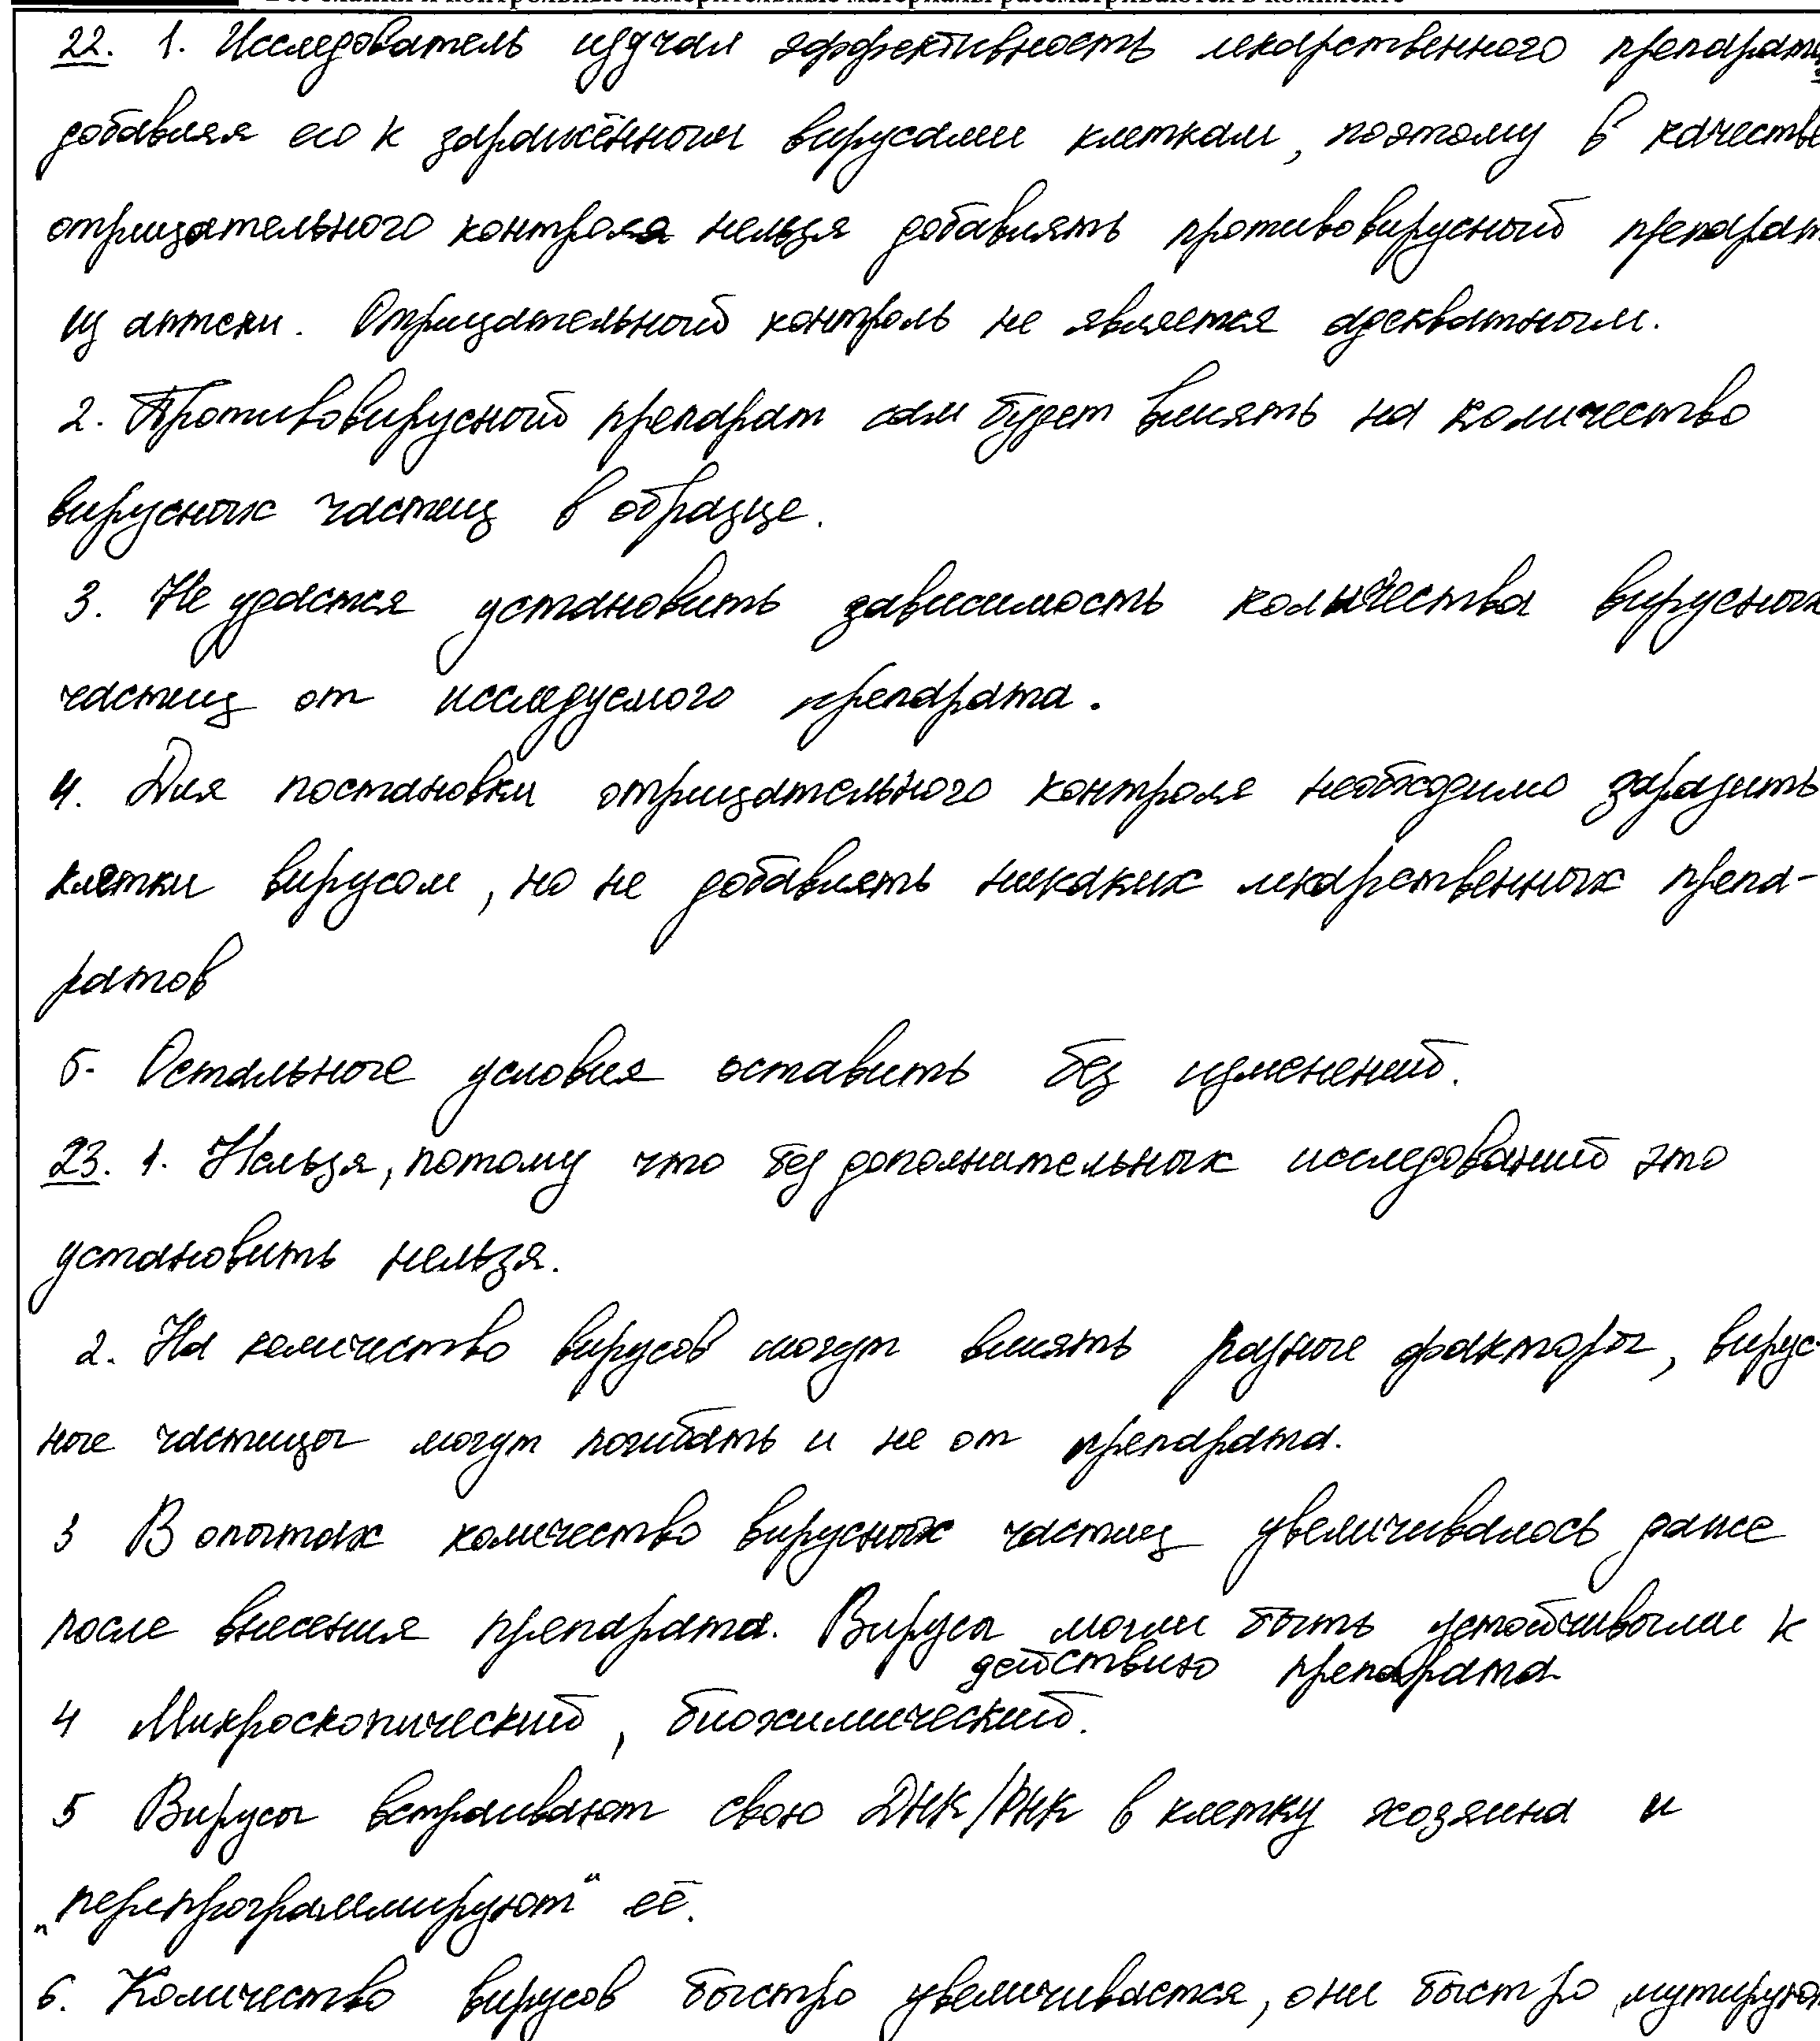 22. 1. Исследователь изучал эффективность лекарственного препарата,
добавляя его к заражённым вирусами клеткам, поэтому в качестве
отрицательного контроля нельзя добавлять противовирусный препарат
из аптеки. Отрицательный контроль не является адекватным.
2. Противовирусный препарат сам будет влиять на количество
вирусных частиц в образце.
3. Не удастся установить зависимость количества вирусных
частиц от исследуемого препарата.
4. Для постановки отрицательного контроля необходимо заразить
клетки вирусом, но не добавлять никаких лекарственных препа-
ратов
5. Остальные условия оставить без изменений.
23. 1. Нельзя, потому что без дополнительных исследований это
установить нельзя.
2. На количество вирусов могут влиять разные факторы, вирус-
ные частицы могут погибать и не от препарата.
3 В опытах количество вирусных частиц увеличивалось даже
после внесения препарата. Вирусы могли быть устойчивыми к
действию препарата
4 Микроскопический, биохимический.
5 Вирусы встраивают свою ДНК/РНК в клетку хозяина и
„перепрограммируют“ её.
6. Количество вирусов быстро увеличивается, они быстро мутируют